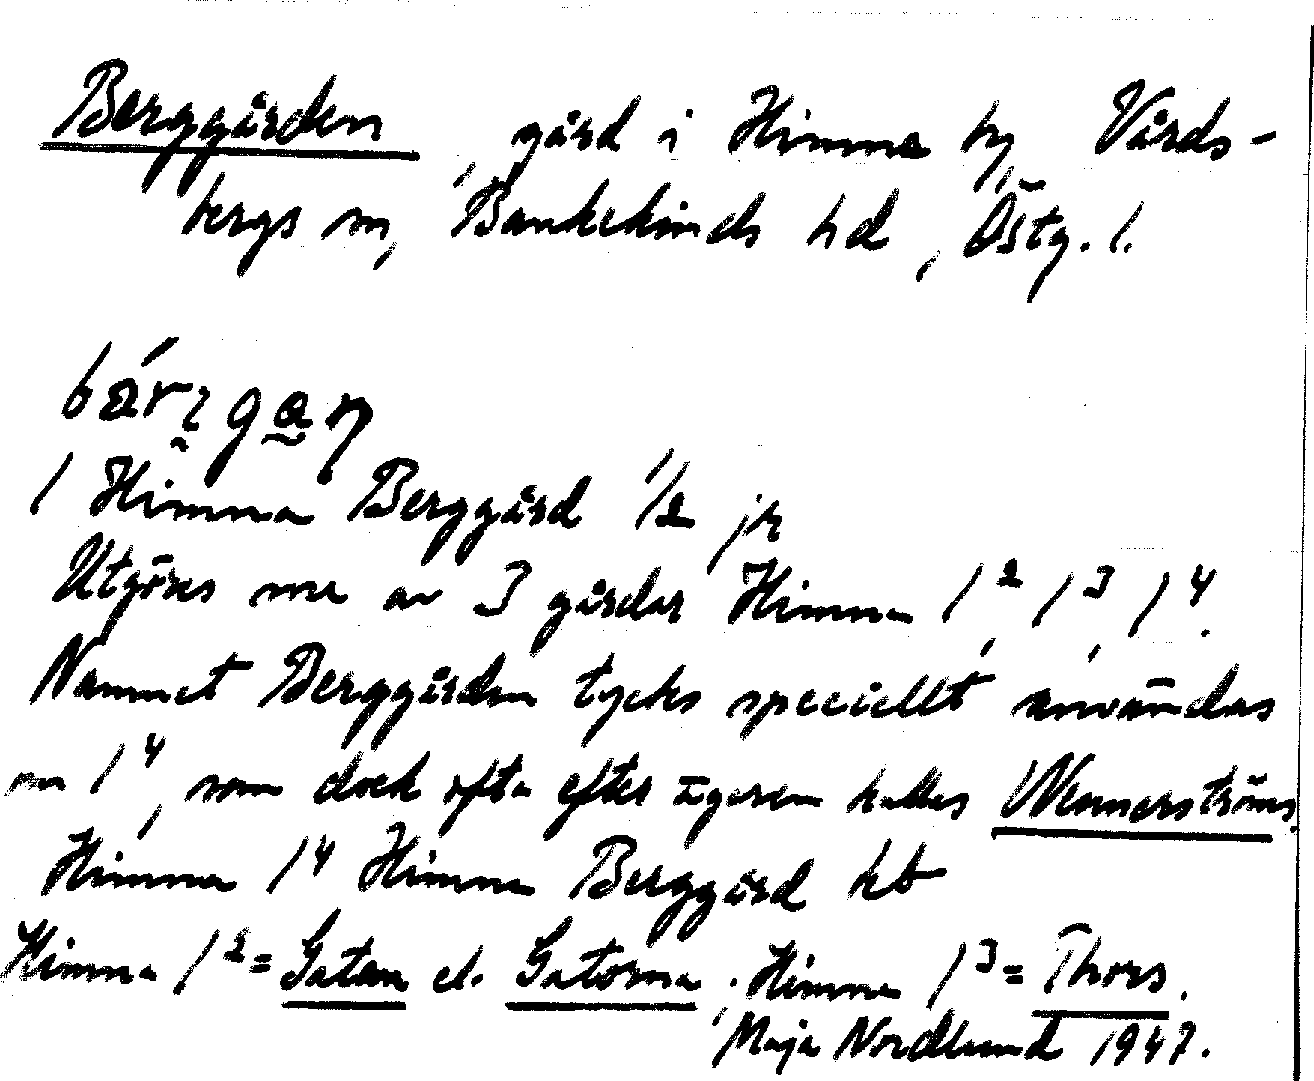 Berggården, gård i Himna by, Vårds-
bergs sn, Bankekinds hd, Östg. l.
1 Himna Berggård 1/2 jk
Utgöres nu av 3 gårdar Himna 1², 1³, 1⁴.
Namnet Berggården tycks speciellt användas
om 1⁴, som dock ofta efter ägaren kallas Wennerströms.
Himna 1⁴ Himna Berggård kb
Himna 1² = Gatan el. Gatorna; Himna 1³ = Thors.
Maja Nordlund 1947.